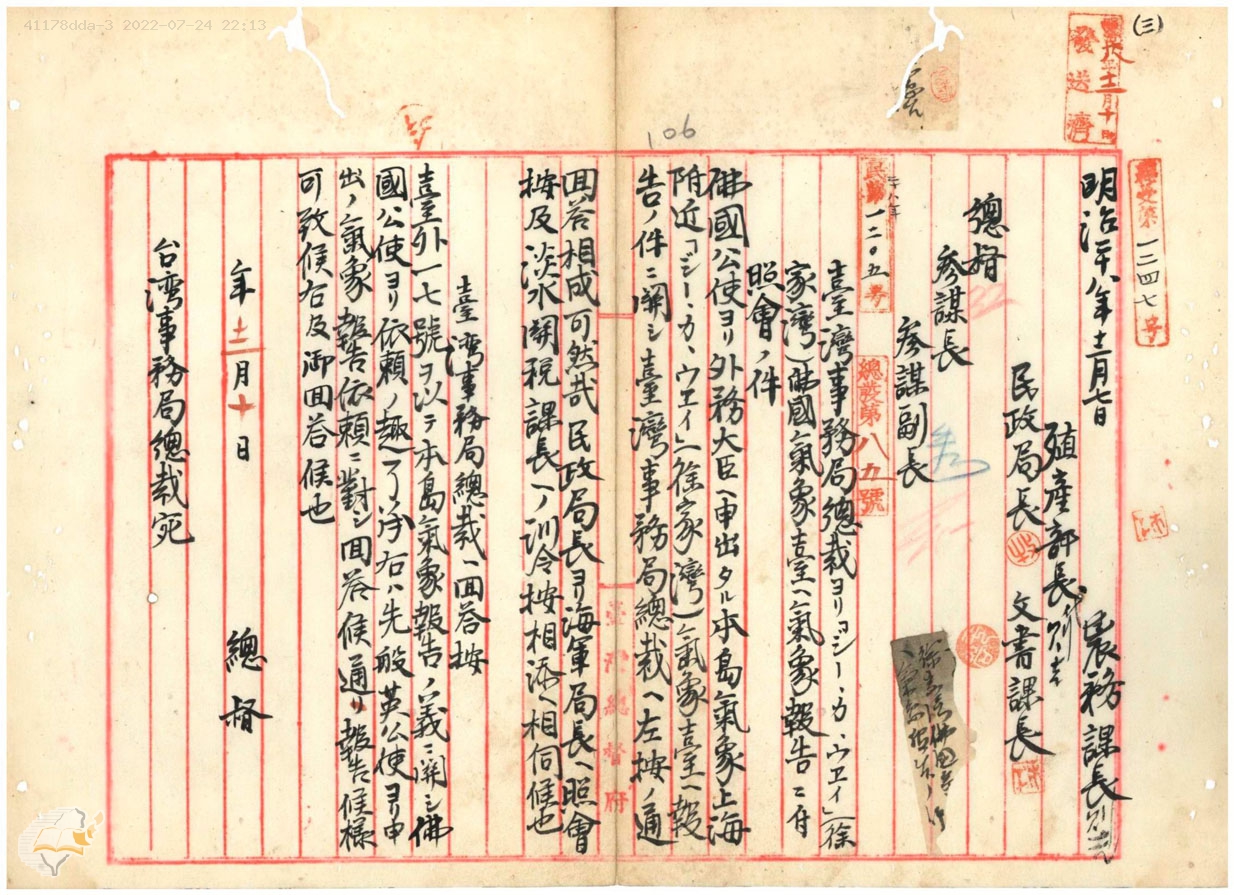 41178dda-3 2022-07-24 22:13
(三)
發送濟
十二月十日
第一二四七号
106
明治二十八年十二月七日
農務課長
殖產部長
民政局長
文書課長
總督
參謀長
參謀副長
二十八年
民第一二〇五号
總發第八五號
臺灣事務局總裁ヨリ「ヨシー、カ、ウエイ」(徐
家灣)佛國氣象臺ヘ氣象報告ニ付
照會ノ件
佛國公使ヨリ外務大臣ヘ申出タル本島氣象上海
附近「ヨシー、カ、ウエイ」(徐家灣)氣象臺ヘ報
告ノ件ニ關シ臺灣事務局總裁ヘ左按ノ通
回答相成可然哉民政局長ヨリ海軍局長ヘ照會
按及淡水關稅課長ヘノ訓令按相添ヘ相伺候也
臺灣總督府
臺灣事務局總裁ヘ回答按
臺外一七號ヲ以テ本島氣象報告ノ義ニ關シ佛
國公使ヨリ依賴ノ趣了承右ハ先般英公使ヨリ申
出ノ氣象報告依賴ニ對シ回答候通リ報告候樣
可致候右及御回答候也
年十二月十日
總督
台灣事務局總裁宛